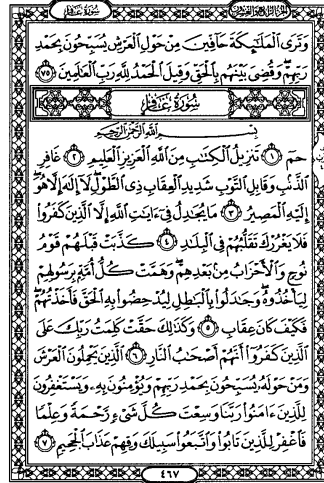 سورة غافر
الجزء الرابع والعشرون
وَتَرَى الْمَلَائِكَةَ حَافِّينَ مِنْ حَوْلِ الْعَرْشِ يُسَبِّحُونَ بِحَمْدِ
رَبِّهِمْ وَقُضِيَ بَيْنَهُم بِالْحَقِّ وَقِيلَ الْحَمْدُ لِلَّهِ رَبِّ الْعَالَمِينَ ٧٥
سُورَةُ غَافِرٍ
بِسْمِ اللَّهِ الرَّحْمَٰنِ الرَّحِيمِ
حمٓ ١ تَنزِيلُ الْكِتَابِ مِنَ اللَّهِ الْعَزِيزِ الْعَلِيمِ ٢ غَافِرِ
الذَّنبِ وَقَابِلِ التَّوْبِ شَدِيدِ الْعِقَابِ ذِي الطَّوْلِ لَا إِلَٰهَ إِلَّا هُوَ
إِلَيْهِ الْمَصِيرُ ٣ مَا يُجَادِلُ فِي آيَاتِ اللَّهِ إِلَّا الَّذِينَ كَفَرُوا
فَلَا يَغْرُرْكَ تَقَلُّبُهُمْ فِي الْبِلَادِ ٤ كَذَّبَتْ قَبْلَهُمْ قَوْمُ
نُوحٍ وَالْأَحْزَابُ مِن بَعْدِهِمْ وَهَمَّتْ كُلُّ أُمَّةٍ بِرَسُولِهِمْ
لِيَأْخُذُوهُ وَجَادَلُوا بِالْبَاطِلِ لِيُدْحِضُوا بِهِ الْحَقَّ فَأَخَذْتُهُمْ
فَكَيْفَ كَانَ عِقَابِ ٥ وَكَذَٰلِكَ حَقَّتْ كَلِمَتُ رَبِّكَ عَلَى
الَّذِينَ كَفَرُوا أَنَّهُمْ أَصْحَابُ النَّارِ ٦ الَّذِينَ يَحْمِلُونَ الْعَرْشَ
وَمَنْ حَوْلَهُ يُسَبِّحُونَ بِحَمْدِ رَبِّهِمْ وَيُؤْمِنُونَ بِهِ وَيَسْتَغْفِرُونَ
لِلَّذِينَ آمَنُوا رَبَّنَا وَسِعْتَ كُلَّ شَيْءٍ رَّحْمَةً وَعِلْمًا
فَاغْفِرْ لِلَّذِينَ تَابُوا وَاتَّبَعُوا سَبِيلَكَ وَقِهِمْ عَذَابَ الْجَحِيمِ ٧
٤٦٧